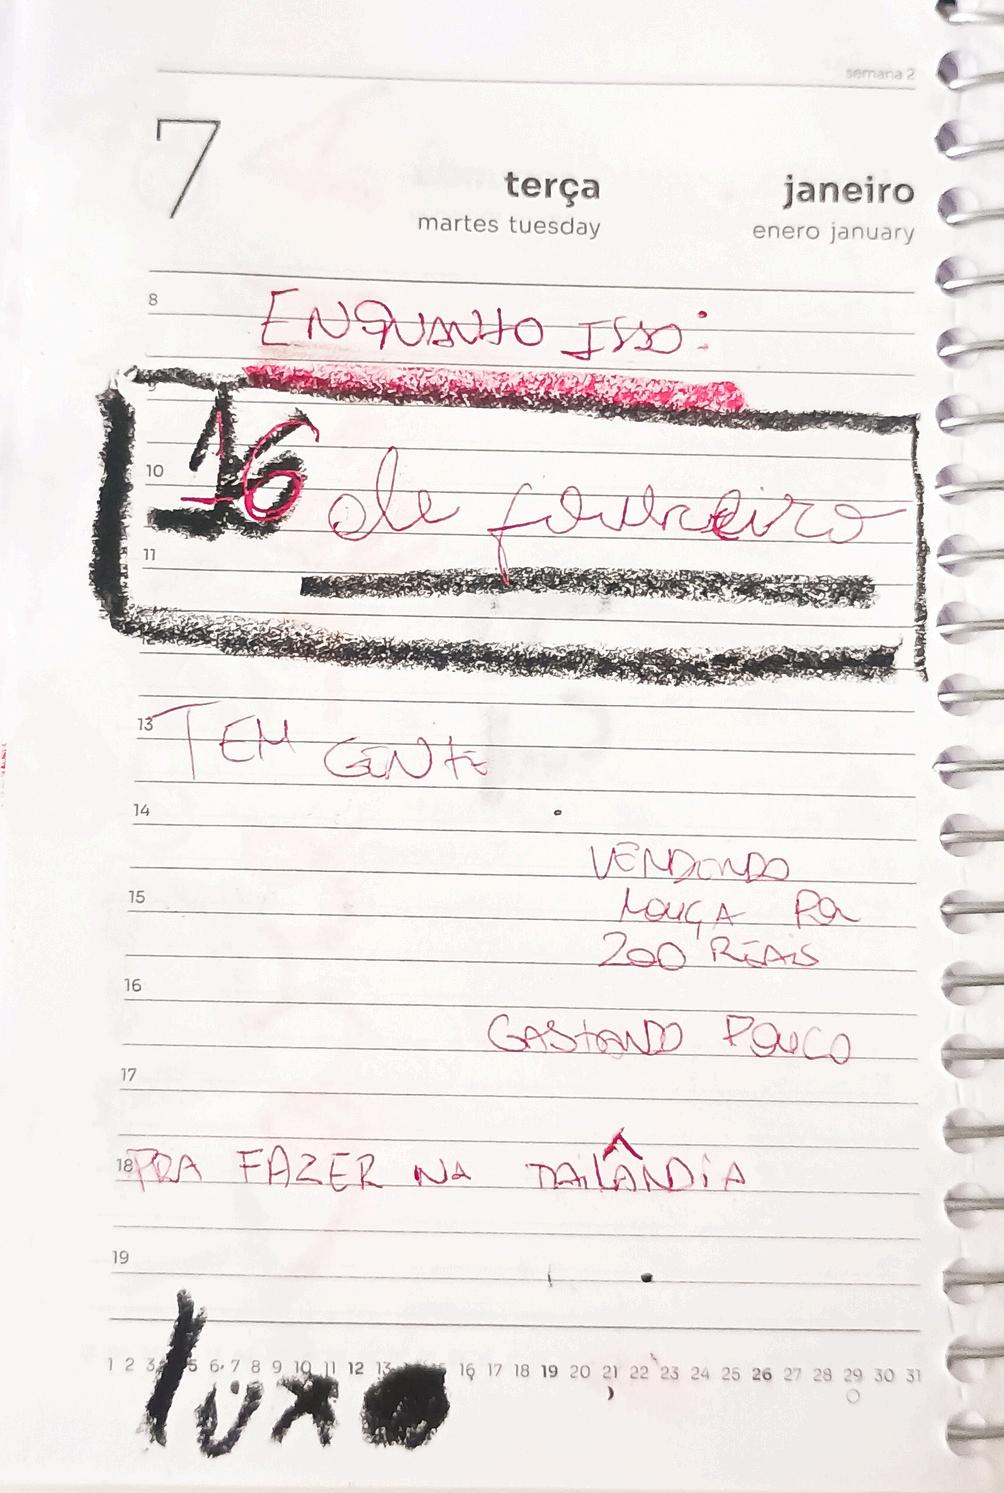 semana 2
7 terça janeiro
martes tuesday enero january
8
ENQUANTO ISSO:
10
16 de fevereiro
11
12
13
TEM GENTE
14
VENDENDO
15
LOUÇA POR
200 REAIS
16
GASTANDO POUCO
17
18
PRA FAZER NA TAILÂNDIA
19
1 2 3 5 6 7 8 9 10 11 12 13 16 17 18 19 20 21 22 23 24 25 26 27 28 29 30 31
luxo